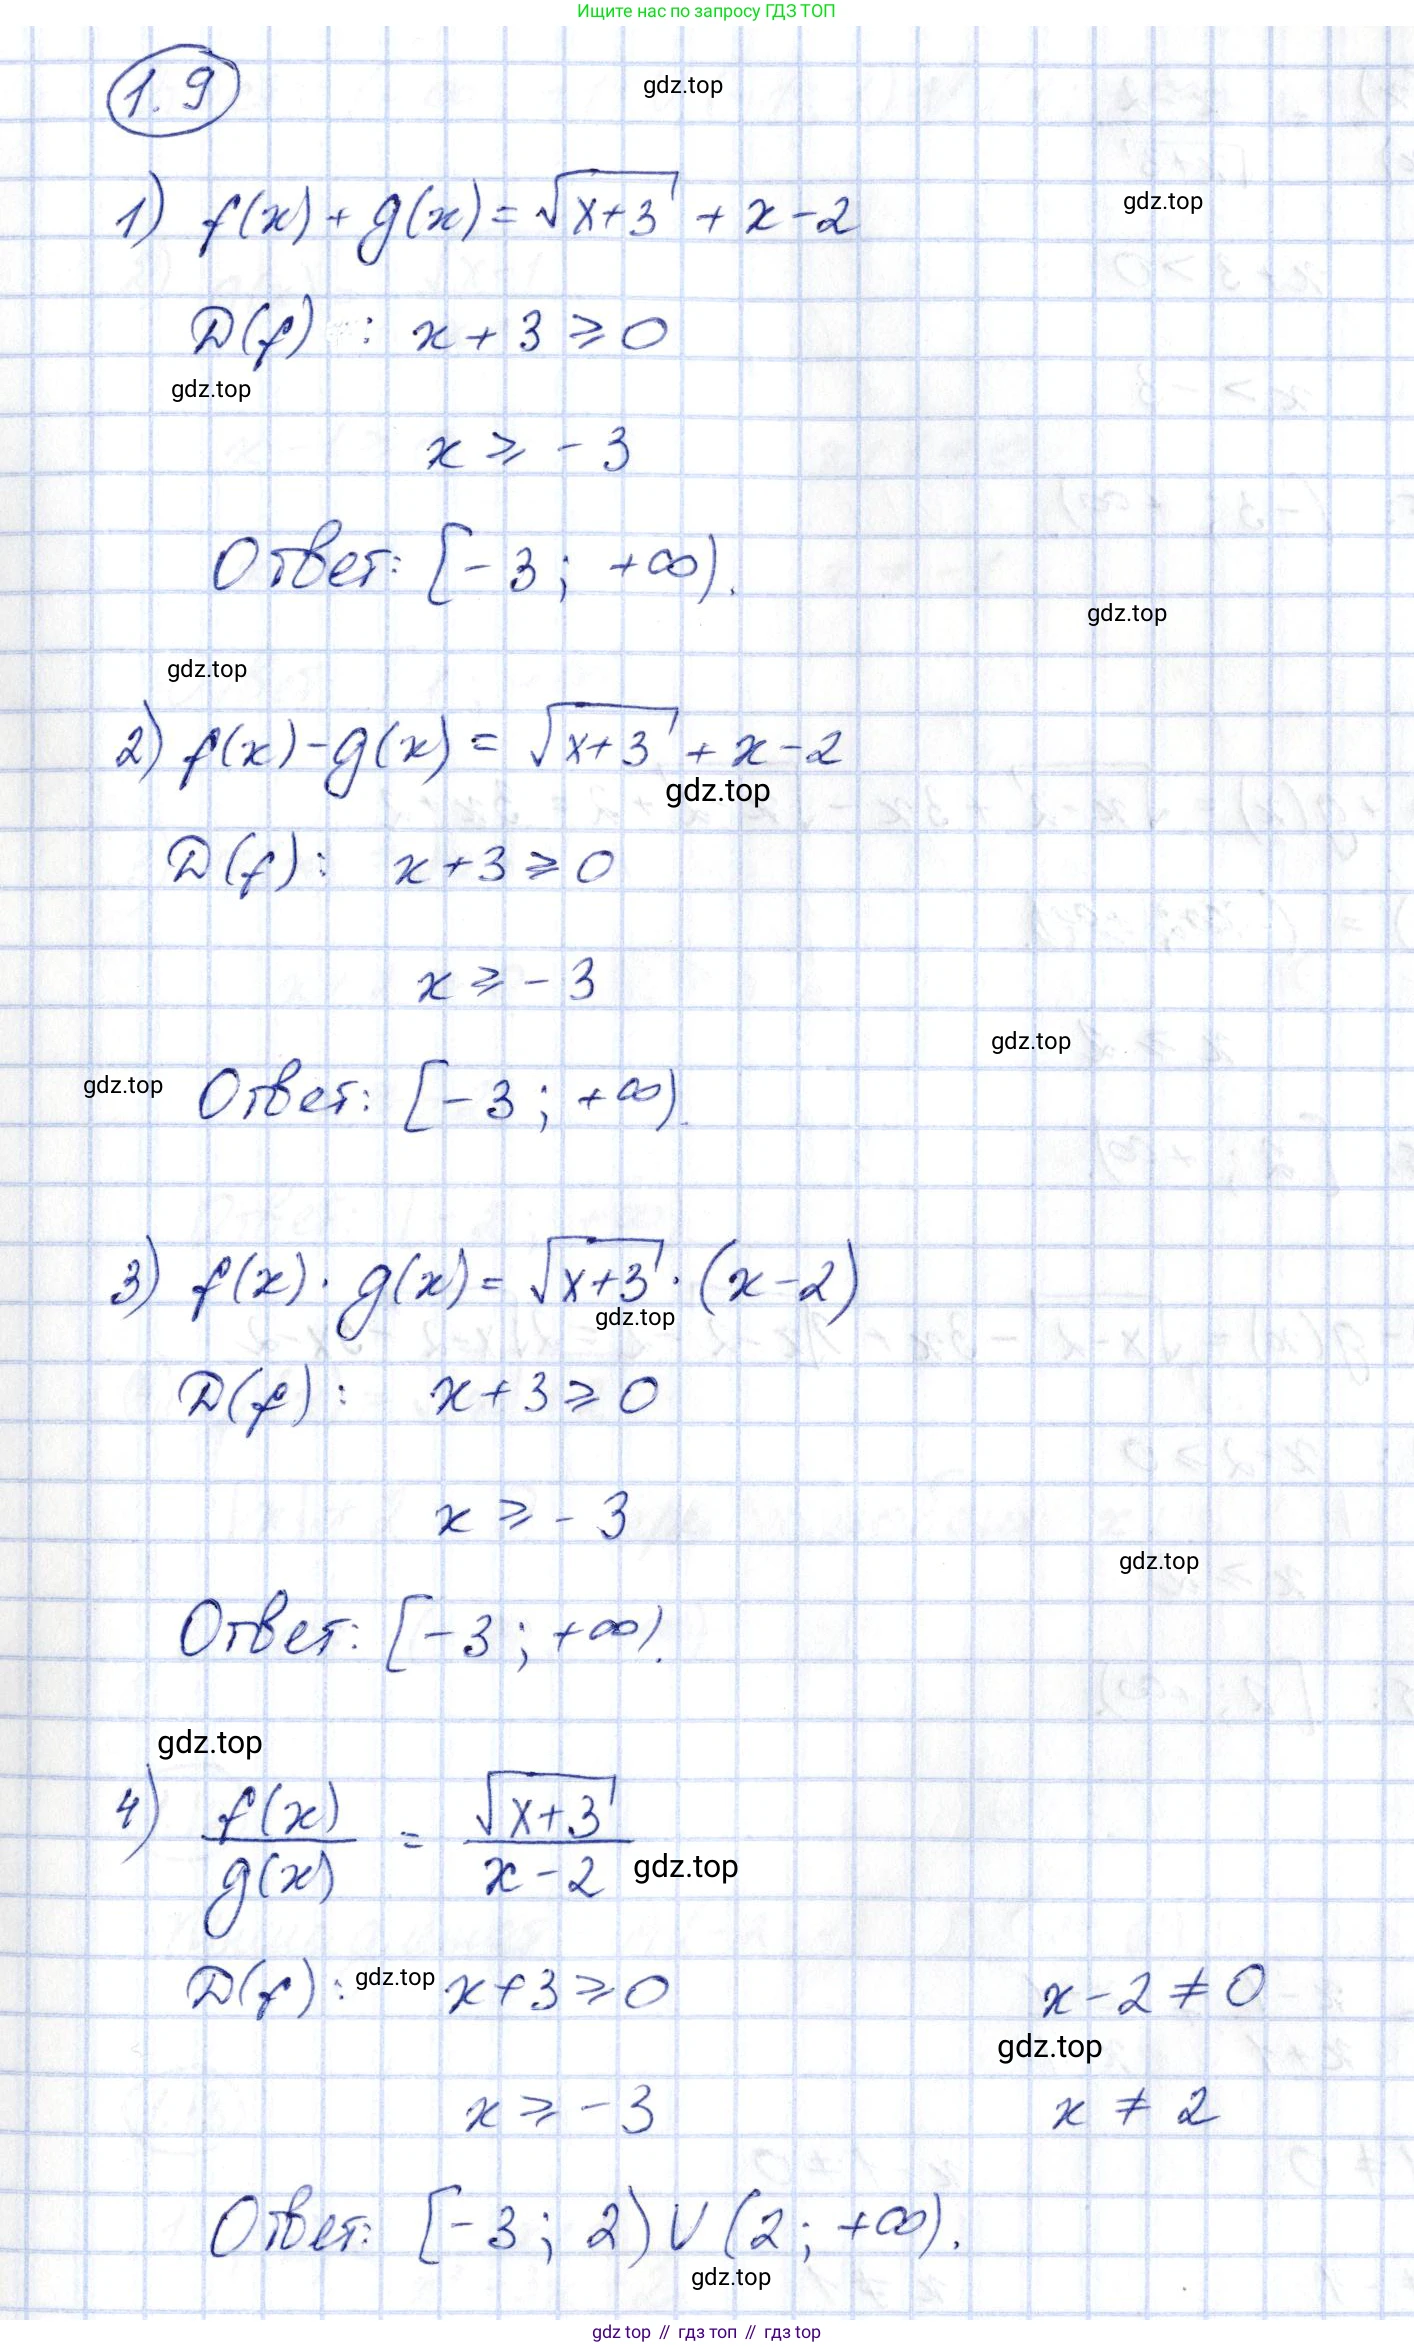 Ищите нас по запросу ГДЗ ТОП
1.9
gdz.top
1) f(x) + g(x) = √(x+3) + x - 2
gdz.top
D(f) : x + 3 ⩾ 0
gdz.top
x ⩾ - 3
Ответ: [- 3 ; +∞).
gdz.top
gdz.top
2) f(x) - g(x) = √(x+3) + x - 2
gdz.top
D(f) : x + 3 ⩾ 0
x ⩾ - 3
gdz.top
gdz.top
Ответ: [- 3 ; +∞).
3) f(x) · g(x) = √(x+3) · (x - 2)
gdz.top
D(f) : x + 3 ⩾ 0
x ⩾ - 3
gdz.top
Ответ: [- 3 ; +∞).
gdz.top
4) f(x)/g(x) = √(x+3)/(x - 2)
gdz.top
D(f) : gdz.top x + 3 ⩾ 0 x - 2 ≠ 0
gdz.top
x ⩾ - 3 x ≠ 2
Ответ: [- 3 ; 2) ∪ (2 ; +∞).
gdz.top
gdz top // гдз топ // gdz top